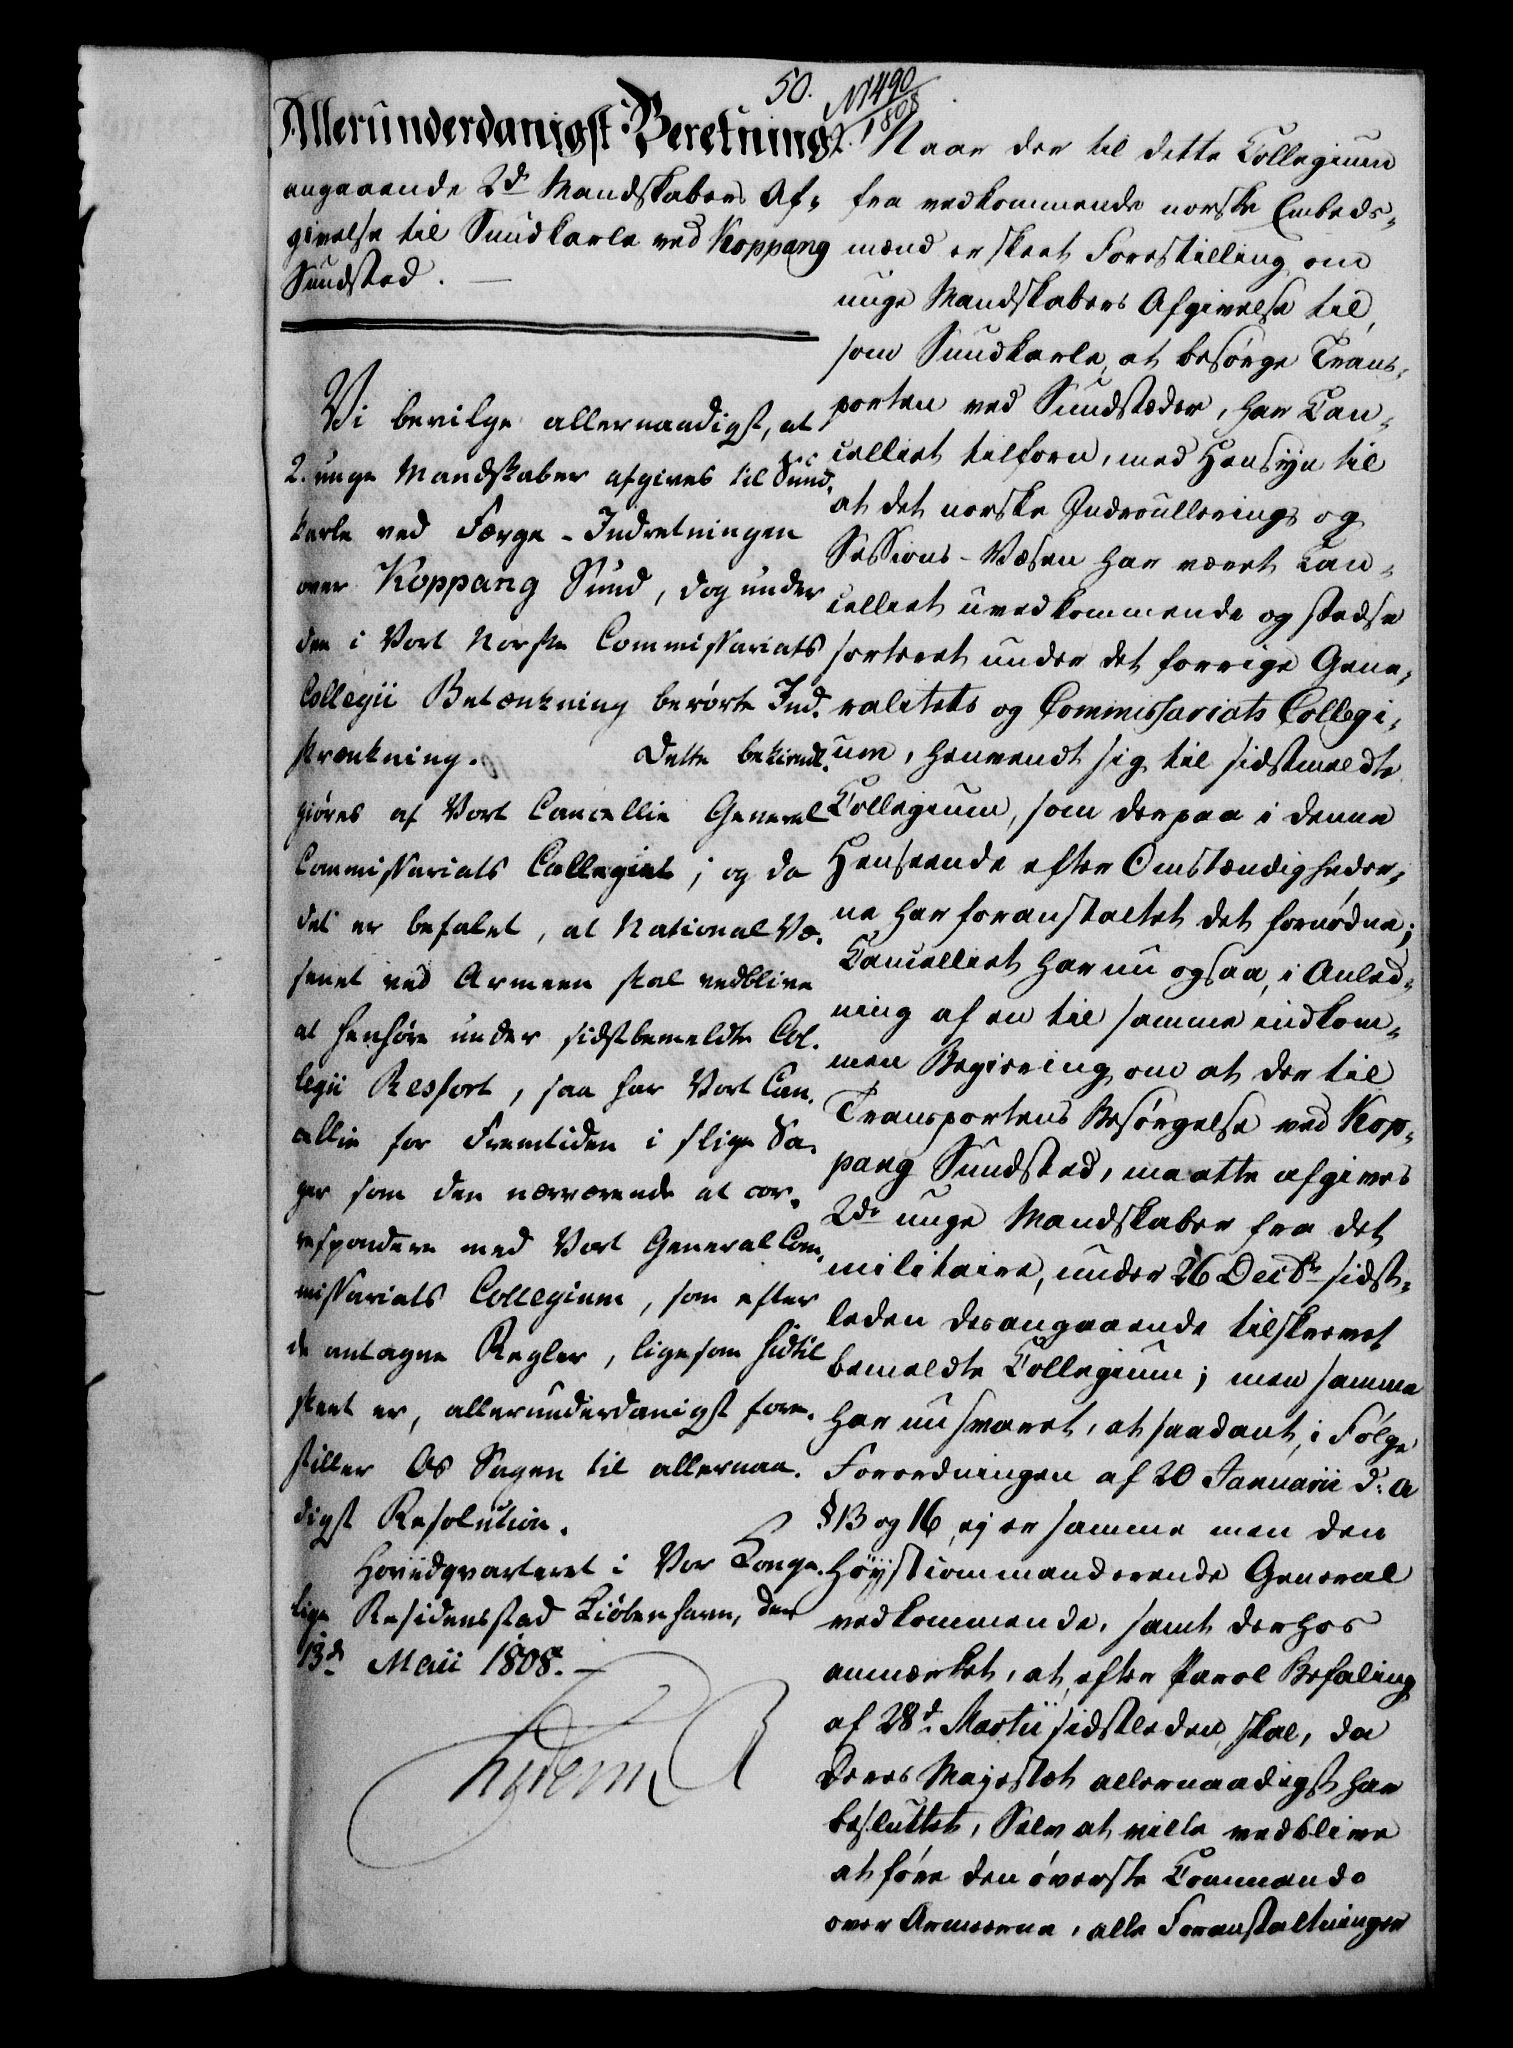 50.
N 490
1808
Allerunderdanigst Beretning
angaaende 2de Mandskabers Af-
givelse til Sundkarle ved Koppang
Sundsted.
Vi bevilge allernaadigst, at
2. unge Mandskaber afgives til Sund-
karle ved Færge-Indretningen
over Koppang Sund, dog under
den i Vort Norske Commissariats
Collegii Betænkning berørte Ind-
skrænkning. Dette bekiendt-
giøres af Vort Cancellie General
Commissariats Collegiet; og da
det er befalet, at National Væ-
senet ved Armeen skal vedblive
at henhøre under sidstbemeldte Col-
legii Ressort, saa har Vort Can-
cellie for Fremtiden i slige Sa-
ger som den nærværende at cor-
respondere med Vort General Com-
missariats Collegium, som efter
de antagne Regler, ligesom hidtil
skeet er, allerunderdanigst fore-
stiller Os Sagen til allernaa-
digst Resolution.
Hovedqvarteret i Vor Konge-
lige Residensstad Kiøbenhavn, den
13de Maii 1808.
Frederik R
Naar der til dette Collegium
fra vedkommende norske Embeds-
mænd er skeet Forestilling om
unge Mandskabers Afgivelse til,
som Sundkarle, at besørge Trans-
porten ved Sundstæder, har Can-
celliet tilforn, med Hensyn til
at det norske Indroullerings og
Sessions-Væsen har været Can-
celliet uvedkommende og stedse
sorteret under det forrige Gene-
ralitets og Commissariats Collegi-
um, henvendt sig til sidstmeldte
Collegium, som derpaa i denne
Henseende efter Omstændigheder-
ne har foranstaltet det fornødne;
Cancelliet har nu ogsaa, i Anled-
ning af en til samme indkom-
men Begiering om at der til
Transportens Besørgelse ved Kop-
pang Sundsted, maatte afgives
2de unge Mandskaber fra det
militaire, under 26 Decbr sidst-
leden desangaaende tilskrevet
bemeldte Collegium; men samme
har nu svaret, at saadant, i Følge
Forordningen af 20 Januarii d: A
§ 13 og 16, ej er samme men den
Høystcommanderende General
vedkommende, samt derhos
anmærket, at, efter Parol Befaling
af 28d. Martii sidstleden, skal, da
Deres Majestæt allernaadigst har
besluttet, Selv at ville vedblive
at føre den øverste Commando
over Armeerne, alle Foranstaltninger